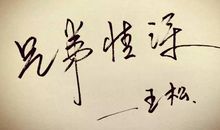 兄弟情深
王松